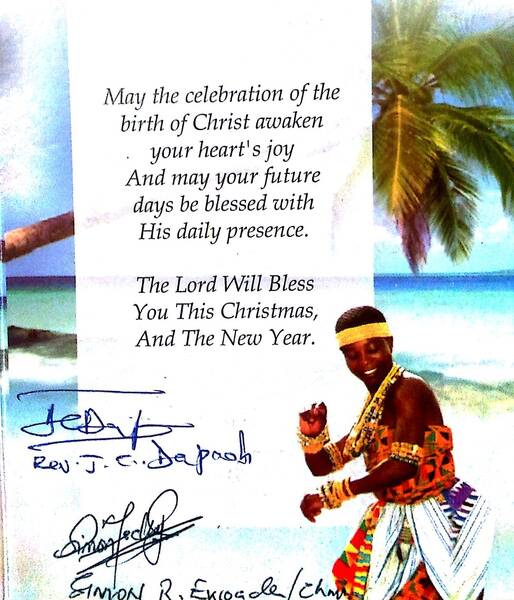 May the celebration of the
birth of Christ awaken
your heart's joy
And may your future
days be blessed with
His daily presence.
The Lord Will Bless
You This Christmas,
And The New Year.
Rev. J. C. Dapaah
SIMON R.